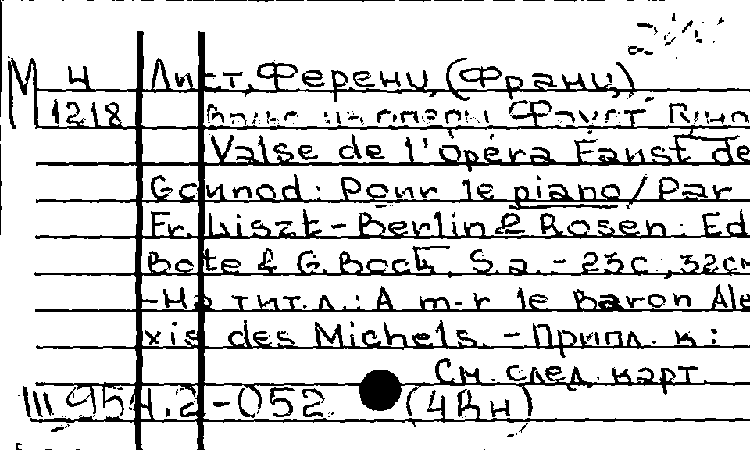 М Н Лист, Ференц (Франц)
1218 Вальс из оперы Фауст
Valse de l'Opéra Faust de
Gounod: Pour le piano / Par
Fr. Liszt - Berlin & Rosen: Ed
Bote & G. Bock, S. a. - 23с., 32см
-На тит.л.: A m-r le Baron Ale
xis des Michels. - Припл. к:
См. след. карт.
III 954.2-052 (4Rн)